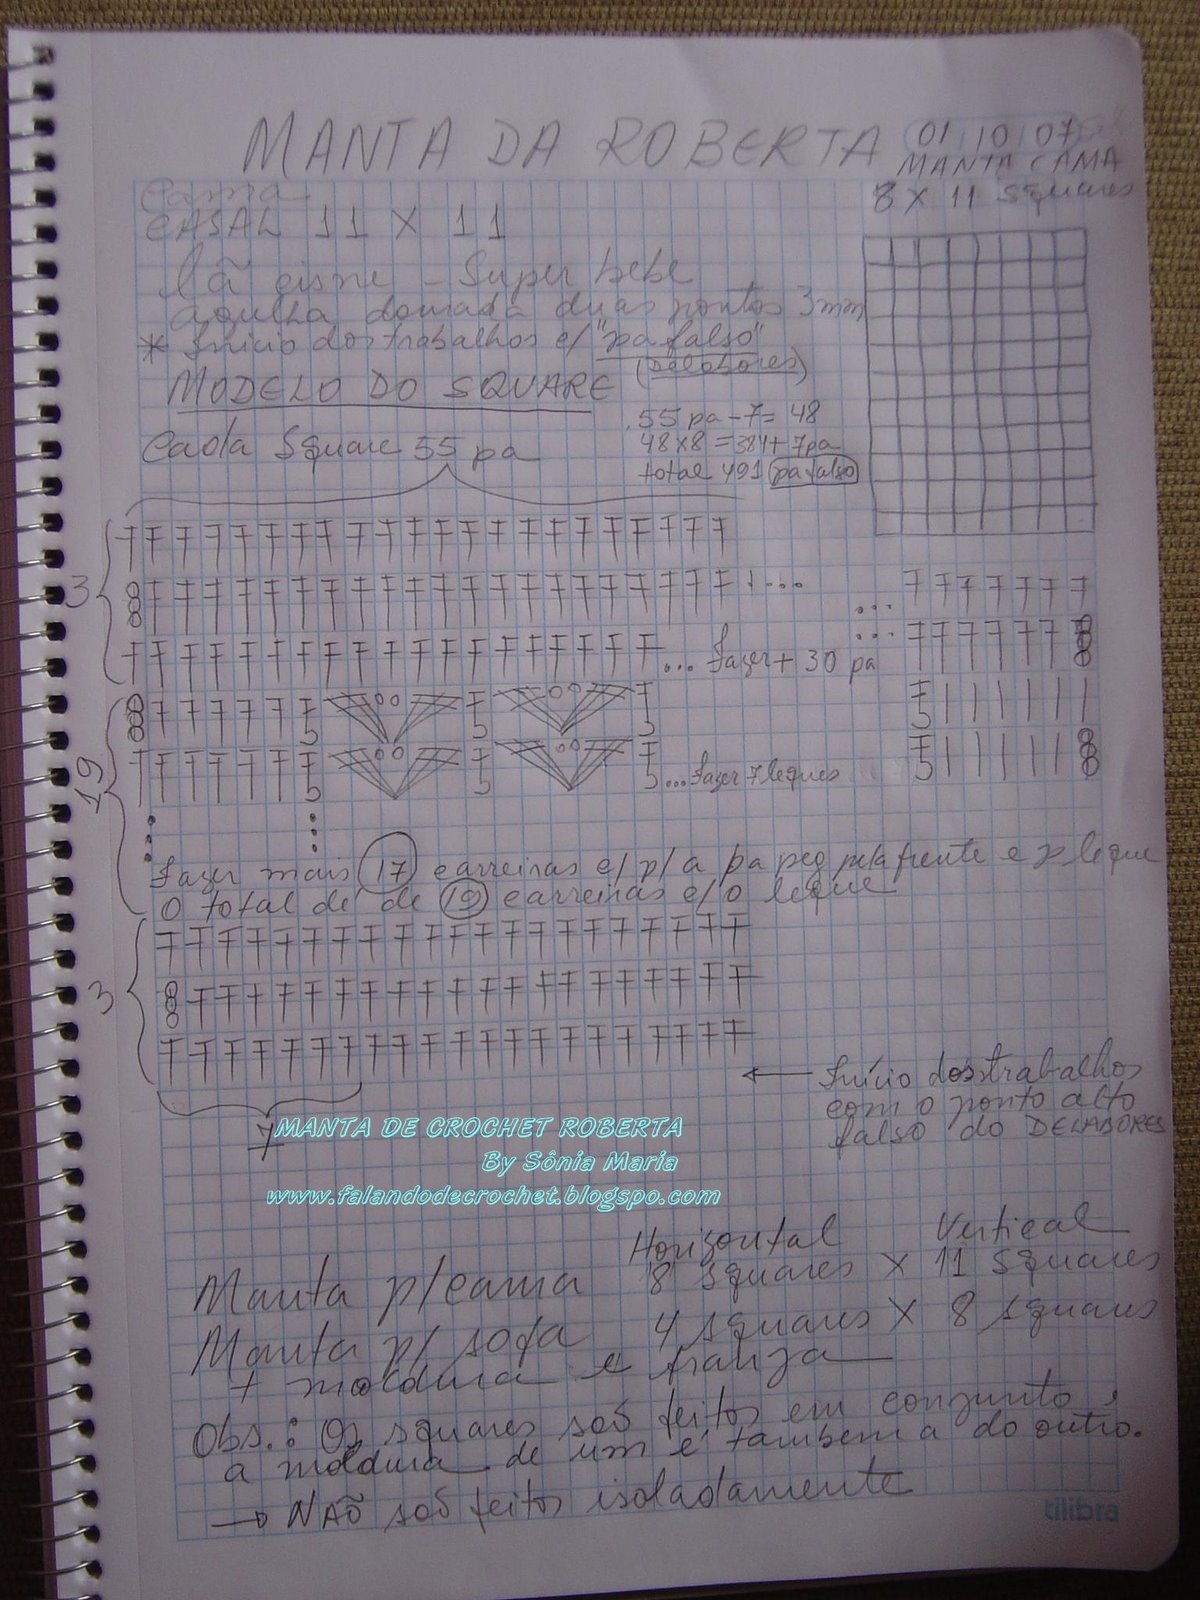 MANTA DA ROBERTA
01 10 07
MANTA CAMA
8 X 11 squares
Cama
CASAL 11 X 11
lã cisne - Super bebe
agulha dourada duas pontos 3mm
* Início dos trabalhos c/ "pa falso"
(DELABORES)
MODELO DO SQUARE
55 pa - 7 = 48
48 X 8 = 384 + 7pa
total 491 pa falso
Cada Square 55 pa
3
... fazer + 30 pa
19
... fazer 7 leques
Fazer mais 17 carreiras c/ p/a pa peg pela frente e leque
O total de de 19 carreiras c/ o leque
3
← Início dos trabalhos
com o ponto alto
falso do DELABORES
7
MANTA DE CROCHET ROBERTA
By Sônia Maria
www.falandodecrochet.blogspo.com
Horizontal Vertical
Manta p/ cama 8 squares X 11 squares
Manta p/ sofa 4 squares X 8 squares
+ moldura e franja
Obs.: Os squares saõ feitos em conjunto,
a moldura de um é também a do outro.
→ NAÕ saõ feitos isoladamente
tilibra